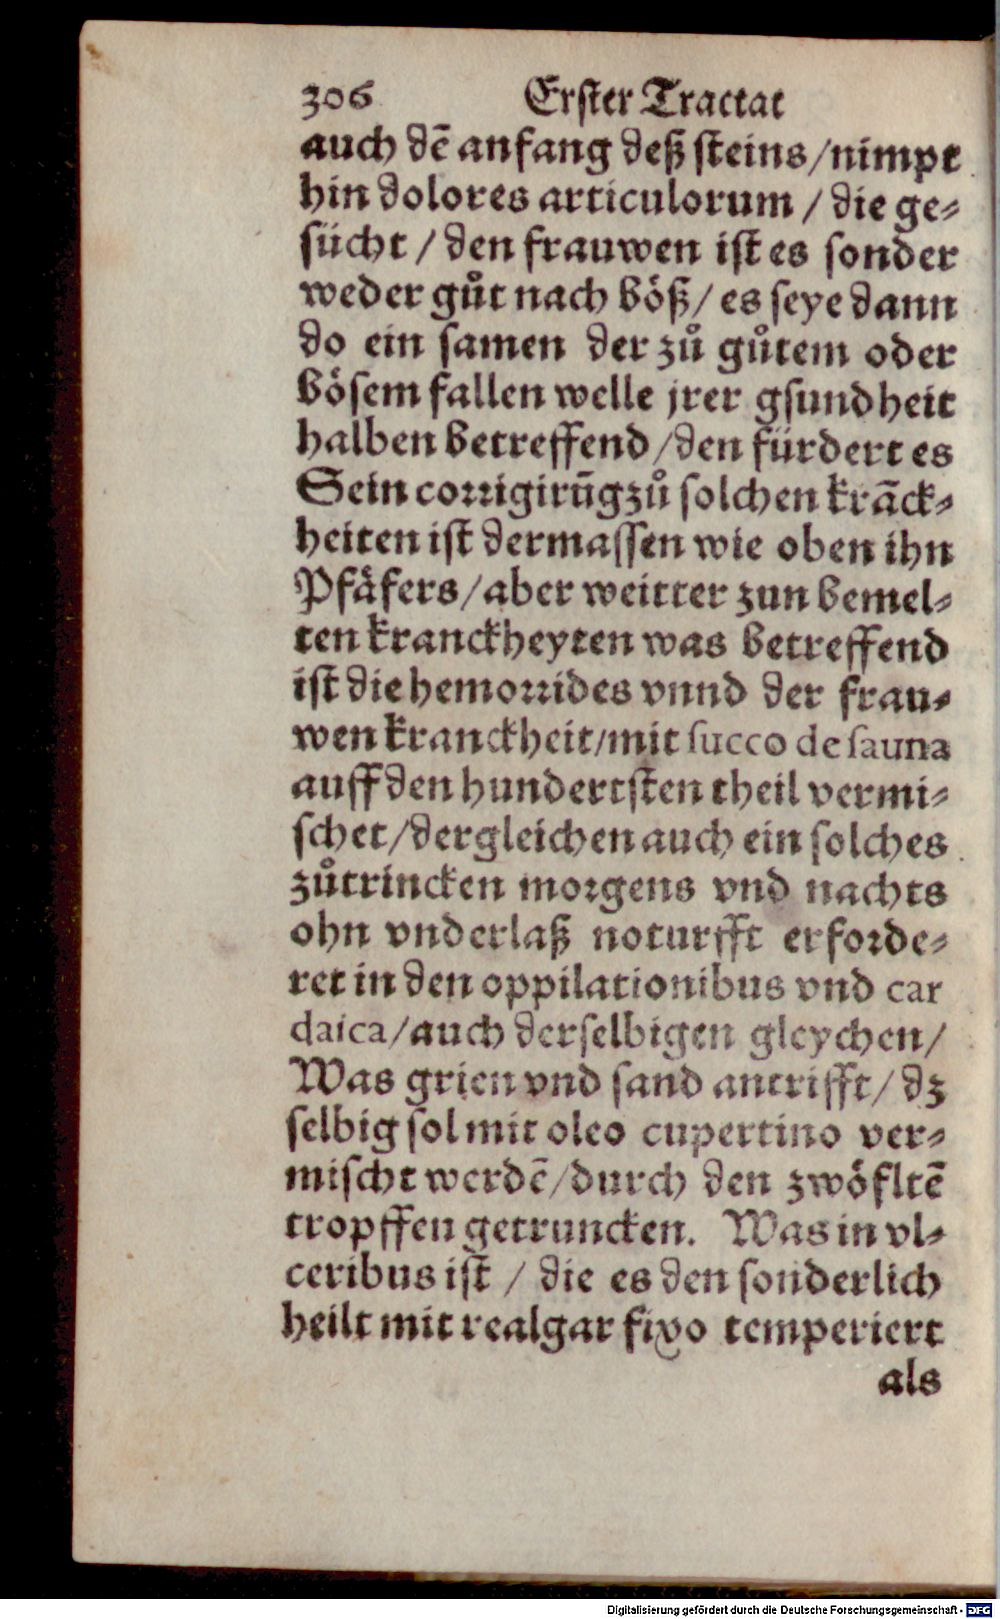 306 Erster Tractat
auch dē anfang deß steins/nimpt
hin dolores articulorum / die ge⸗
sücht / den frauwen ist es sonder
weder gůt nach böß/ es seye dann
do ein samen der zů gůtem oder
bösem fallen welle jrer gsundheit
halben betreffend/den fürdert es
Sein corrigirūgzů solchen krāck⸗
heiten ist dermassen wie oben ihn
Pfäfers/aber weitter zun bemel⸗
ten kranckheyten was betreffend
ist die hemorrides vnnd der frau⸗
wen kranckheit/mit succo de sauna
auff den hundertsten theil vermi⸗
schet/dergleichen auch ein solches
zůtrincken morgens vnd nachts
ohn vnderlaß noturfft erforde⸗
ret in den oppilationibus vnd car
daica/auch derselbigen gleychen/
Was grien vnd sand antrifft/ dz
selbig sol mit oleo cupertino ver⸗
mischt werdē/durch den zwöfltē
tropffen getruncken. Was in vl⸗
ceribus ist / die es den sonderlich
heilt mit realgar fixo temperiert
als
Digitalisierung gefördert durch die Deutsche Forschungsgemeinschaft - DFG